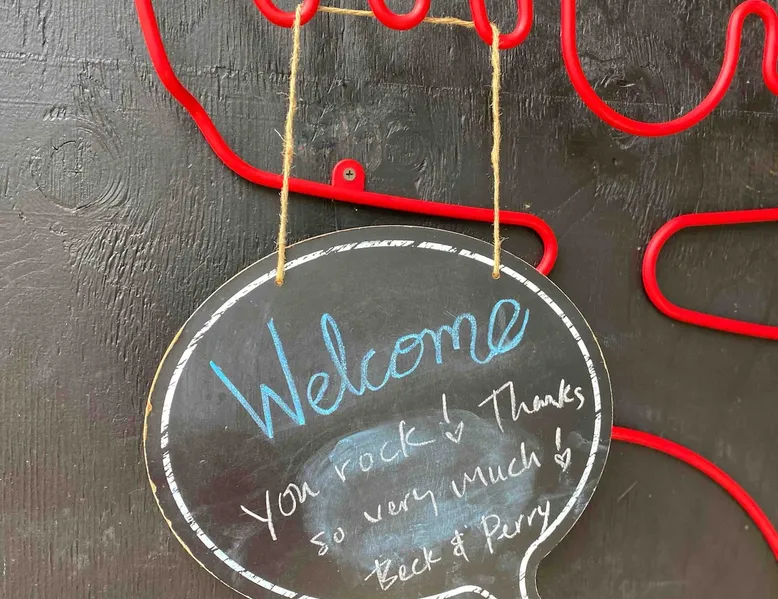 Welcome
You rock! Thanks
so very much!
Beck & Perry